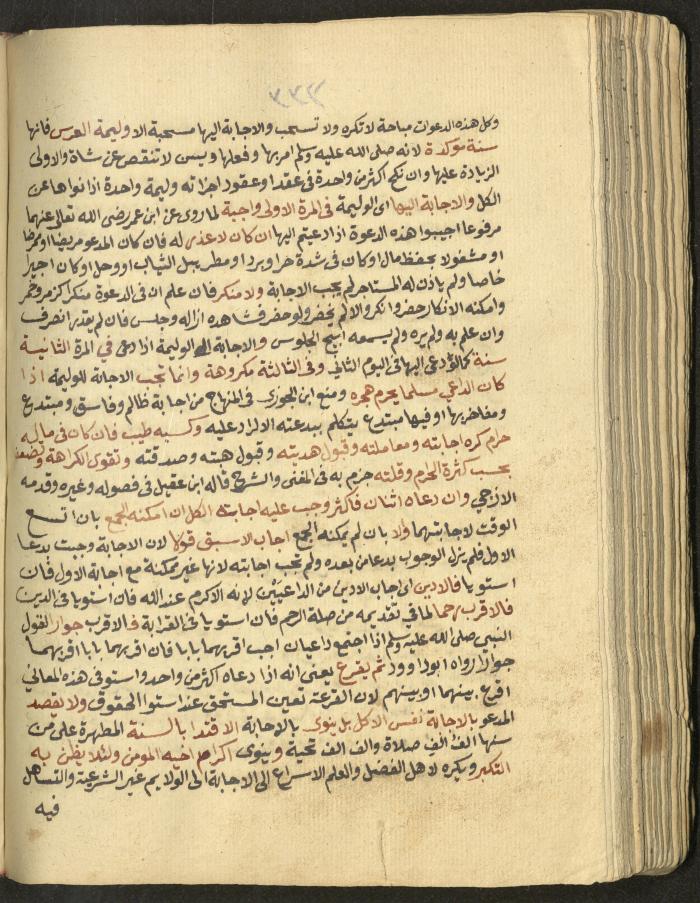 ٢٣٧
وكل هذه الدعوات مباحة لا تكره ولا تستحب والاجابة اليها مستحبة الا وليمة العرس فانها
سنة مؤكدة لانه صلى الله عليه وسلم امر بها وفعلها ويسن لا تنقص عن شاة والاولى
الزيادة عليها وان نكح اكثر من واحدة في عقد او عقود اجزاته وليمة واحدة اذا نواها عن
الكل والاجابة اليها اى الوليمة في المرة الاولى واجبة لما روى عن ابن عمر رضى الله تعالى عنهما
مرفوعا اجيبوا هذه الدعوة اذا دعيتم اليها ان كان لا عذر له فان كان المدعو مريضا او ممرضا
او مشغولا بحفظ مال او كان في شدة حر او برد او مطر يبل الثياب او وحل او كان اجيرا
خاصا ولم ياذن له المستاجر لم يجب الاجابة ولا منكر فان علم ان في الدعوة منكرا كزمر وخمر
وامكنه الانكار حضر وانكر والا لم يحضر ولو حضر فشاهده ازاله وجلس فان لم يقدر انصرف
وان علم به ولم يره ولم يسمعه ابيح الجلوس والاجابة الى الوليمة اذا دعى في المرة الثانية
سنة كما لو دعى اليها في اليوم الثاني وفي الثالثة مكروهة وانما تجب الاجابة للوليمة اذا
كان الداعي مسلما يحرم هجره ومنع ابن الجوزى في المنهاج من اجابة ظالم وفاسق ومبتدع
ومفاخر بها او فيها مبتدع يتكلم ببدعته الا لراد عليه وكسبه طيب فان كان في ماله
حرام كره اجابته ومعاملته وقبول هديته وقبول هبته وصدقته وتقوى الكراهة وتضعف
بحسب كثرة الحرام وقلته جزم به في المغنى والشرح قاله ابن عقيل في فصوله وغيره وقدمه
الازجي وان دعاه اثنان فاكثر وجب عليه اجابة الكل ان امكنه الجمع بان اتسع
الوقت لاجابتهما والا بان لم يمكنه الجمع اجاب الاسبق قولا لان الاجابة وجبت بدعا
الاول فلم يزل الوجوب بدعا من بعده ولم تجب اجابته لانها غير ممكنة مع اجابة الاول فان
استويا فالادين اى اجاب الادين من الداعيين لانه الاكرم عند الله فان استويا في الدين
فالاقرب رحما لما في تقديمه من صلة الرحم فان استويا في القرابة فالاقرب جوارا لقول
النبي صلى الله عليه وسلم اذا اجتمع داعيان اجب اقربهما بابا فان اقربهما بابا اقربهما
جوارا رواه ابو داوود ثم يقرع يعنى انه اذا دعاه اكثر من واحد واستو في هذه المعاني
اقرع بينهما او بينهم لان القرعة تعين المستحق عند استوا الحقوق ولا يقصد
المدعو بالاجابة نفس الاكل بل ينوى بالاجابة الاقتدا بالسنة المطهرة على من
سنها الف الف صلاة والف الف تحية وينوى اكرام اخيه المومن ولئلا يظن به
التكبر ويكره لاهل الفضل والعلم الاسراع الى الاجابة الى الولايم غير الشرعية والتساهل
فيه